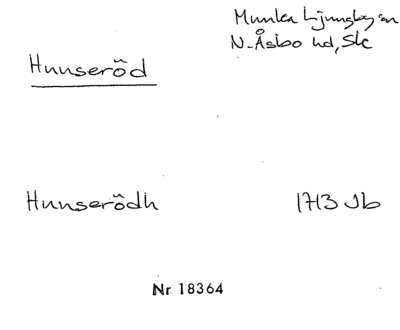 Munka Ljungby sn
N. Åsbo hd, Sk
Hunseröd
Hunserödh 1713 Jb
Nr 18364